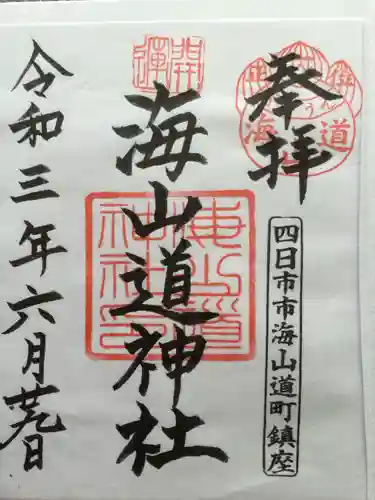 奉拝
四日市市海山道町鎮座
開運
海山道神社
海山道神社印
令和三年六月廿九日